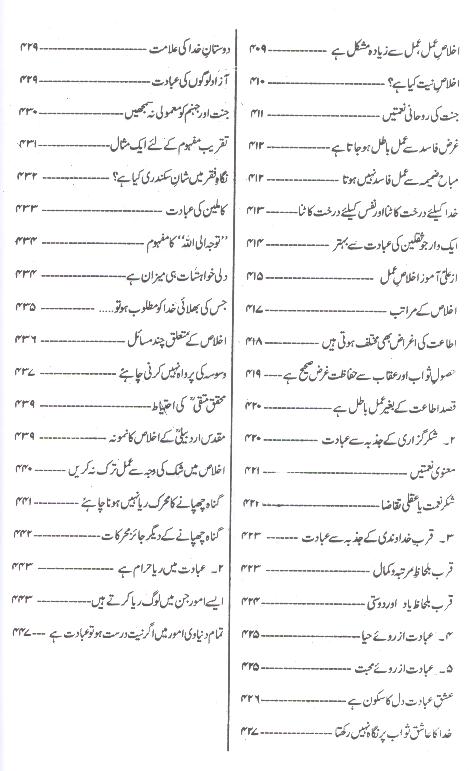 اخلاص عمل، عمل سے زیادہ مشکل ہے ---------- ۴۰۹
اخلاص نیت کیا ہے؟ ---------- ۴۱۰
جنت کی روحانی نعمتیں ---------- ۴۱۱
غرض فاسد سے عمل باطل ہو جاتا ہے ---------- ۴۱۲
مباح ضمیمہ سے عمل فاسد نہیں ہوتا ---------- ۴۱۲
خدا کیلئے درخت کاٹنا اور نفس کیلئے درخت کاٹنا ---------- ۴۱۳
ایک وار جو ثقلین کی عبادت سے بہتر ---------- ۴۱۴
از علیؑ آموز اخلاص عمل ---------- ۴۱۵
اخلاص کے مراتب ---------- ۴۱۷
اطاعت کی اغراض بھی مختلف ہوتی ہیں ---------- ۴۱۸
حصول ثواب اور عقاب سے حفاظت غرض صحیح ہے ---------- ۴۱۹
قصد اطاعت کے بغیر عمل باطل ہے ---------- ۴۲۰
۲۔ شکر گزاری کے جذبہ سے عبادت ---------- ۴۲۰
معنوی نعمتیں ---------- ۴۲۱
شکر نعمت یا عقلی تقاضا ---------- ۴۲۲
۳۔ قرب خداوندی کے جذبہ سے عبادت ---------- ۴۲۳
قرب بلحاظ مرتبہ و کمال ---------- ۴۲۳
قرب بلحاظ یاد اور دوستی ---------- ۴۲۴
۴۔ عبادت از روئے حیا ---------- ۴۲۵
۵۔ عبادت از روئے محبت ---------- ۴۲۵
عشق عبادت دل کا سکون ہے ---------- ۴۲۶
خدا کا عاشق ثواب پر نگاہ نہیں رکھتا ---------- ۴۲۷
دوستان خدا کی علامت ---------- ۴۲۹
آزاد لوگوں کی عبادت ---------- ۴۲۹
جنت اور جہنم کو معمولی نہ سمجھیں ---------- ۴۳۰
تقریب مفہوم کے لئے ایک مثال ---------- ۴۳۱
نگاہ فقر میں شان سکندری کیا ہے؟ ---------- ۴۳۲
کاملین کی عبادت ---------- ۴۳۳
”توجہ الی اللہ“ کا مفہوم ---------- ۴۳۴
دلی خواہشات ہی میزان ہے ---------- ۴۳۴
جس کی بھلائی خدا کو مطلوب ہو تو..... ---------- ۴۳۵
اخلاص کے متعلق چند مسائل ---------- ۴۳۶
وسوسہ کی پرواہ نہیں کرنی چاہئے ---------- ۴۳۷
محقق متقیؒ کی احتیاط ---------- ۴۳۹
مقدس اردبیلیؒ کے اخلاص کا نمونہ ---------- ۴۳۹
اخلاص میں شک کی وجہ سے عمل ترک نہ کریں ---------- ۴۴۰
گناہ چھپانے کا محرک ریا نہیں ہونا چاہئے ---------- ۴۴۱
گناہ چھپانے کے دیگر جائز محرکات ---------- ۴۴۲
۲۔ عبادت میں ریا حرام ہے ---------- ۴۴۳
ایسے امور جن میں لوگ ریا کرتے ہیں ---------- ۴۴۳
تمام دنیاوی امور میں اگر نیت درست ہو تو عبادت ہے --- ۴۴۷